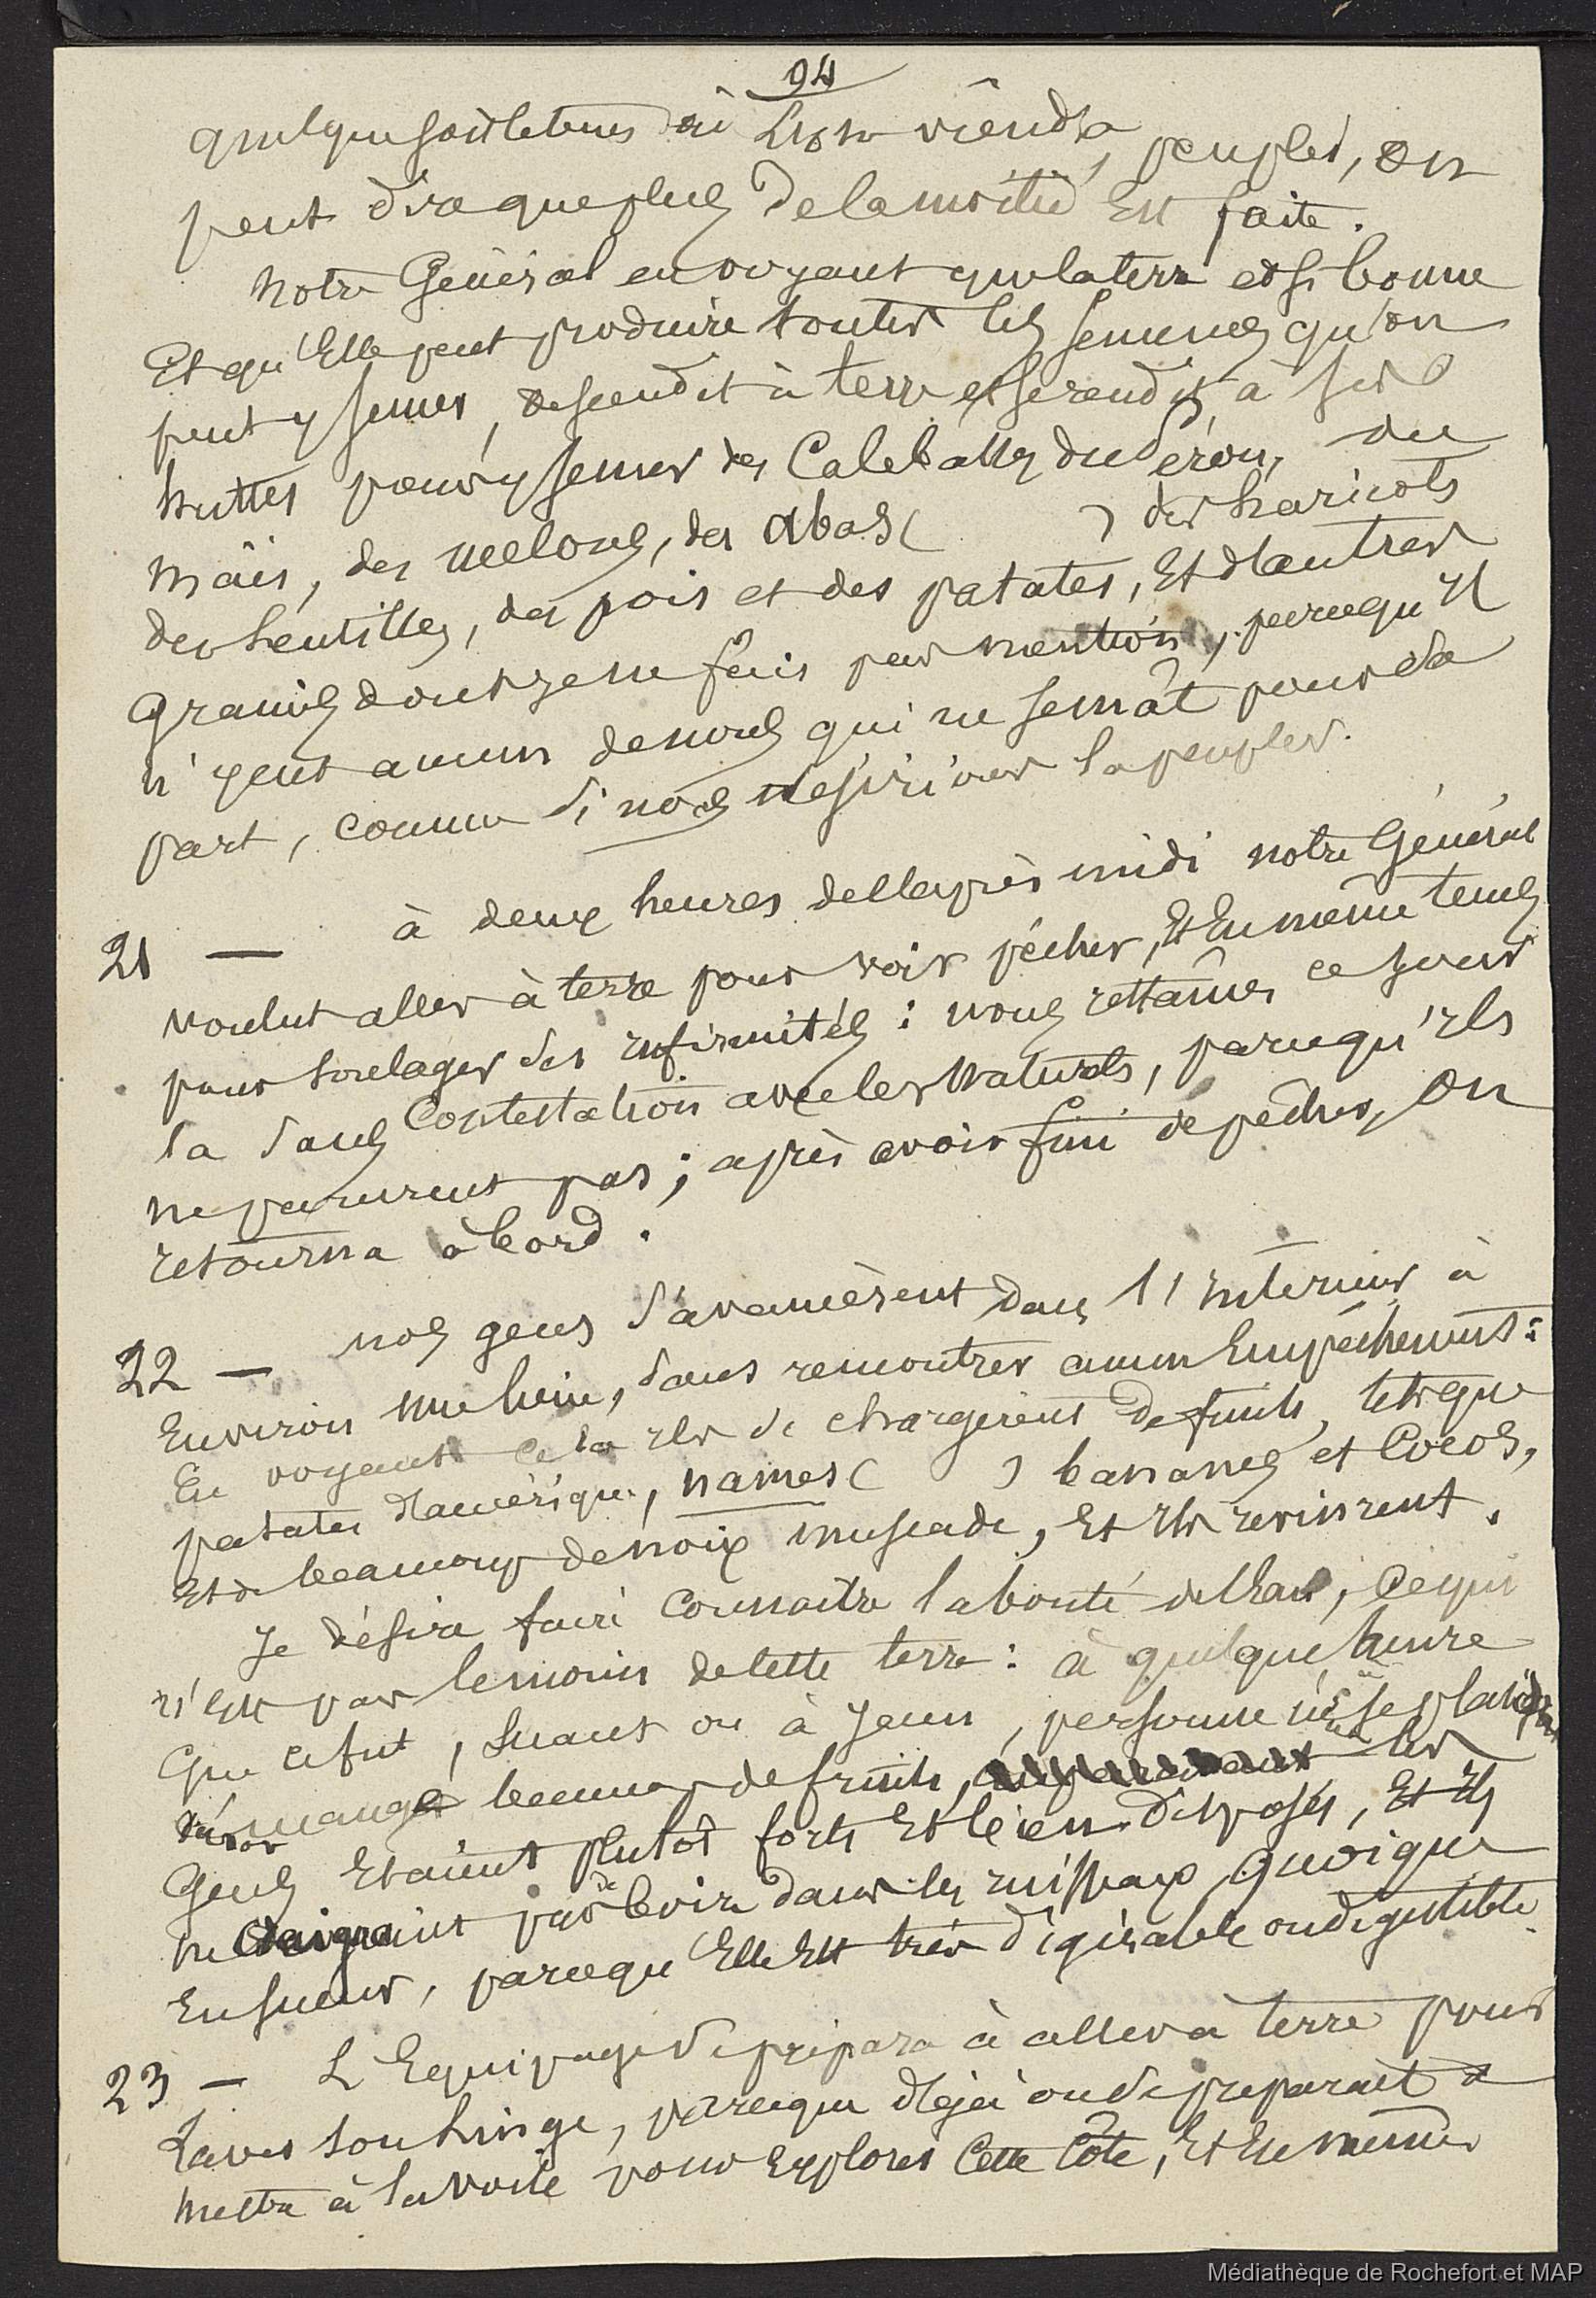 94
quelque soit le tems où l'on viendra peupler, on
peut dire que plus de la moitié est faite.
Notre Général en voyant que la terre est si bonne
Et qu'Elle peut produire toutes les semences qu'on
peut y semer, descendit à terre et se rendit à ses
huttes pour y semer des Calebasses du Pérou, du
Maïs, des melons, des abas ( ) des haricots
des Lentilles, des pois et des patates, Et d'autres
Graines dont je ne fais pas mention, parcequ'Il
n'y eut aucun de nous qui ne semât pour sa
part, comme si nous desirions la peupler.
21 — à deux heures de l'après midi notre Général
voulut aller à terre pour voir pêcher, Et En même tems
pour soulager ses infirmités : nous restâmes ce jour
là sans Contestation avec les Naturels, parcequ'Ils
ne parurent pas ; après avoir fini de pêcher, on
retourna à bord.
22 — nos gens s'avancèrent dans l'Interieur à
Environ une lieue, sans rencontrer aucun Empêchement :
En voyant cela Ils se chargèrent de fruits, tels que
patates d'amérique, names ( ) bananes et Cocos,
Et de beaucoup de noix muscade, Et Ils revinrent.
Je désire faire connaitre la bonté de l'Eau, ce qui
n'est pas le moins de cette terre : à quelque heure
que ce fut, suant ou à jeun, personne ne se plaignit
d'avoir mangé beaucoup de fruits, les
Gens Etaient plutôt forts Et bien disposés, Et Ils
ne craignaient pas de boire dans les ruisseaux, quoique
En sueur, parceque Elle Est très digérable ou digestible.
23 — L'Equipage se prépara à aller à terre pour
Laver son Linge, parceque déjà on se préparait à
mettre à la voile pour Explorer Cette Côte, Et En même
Médiathèque de Rochefort et MAP